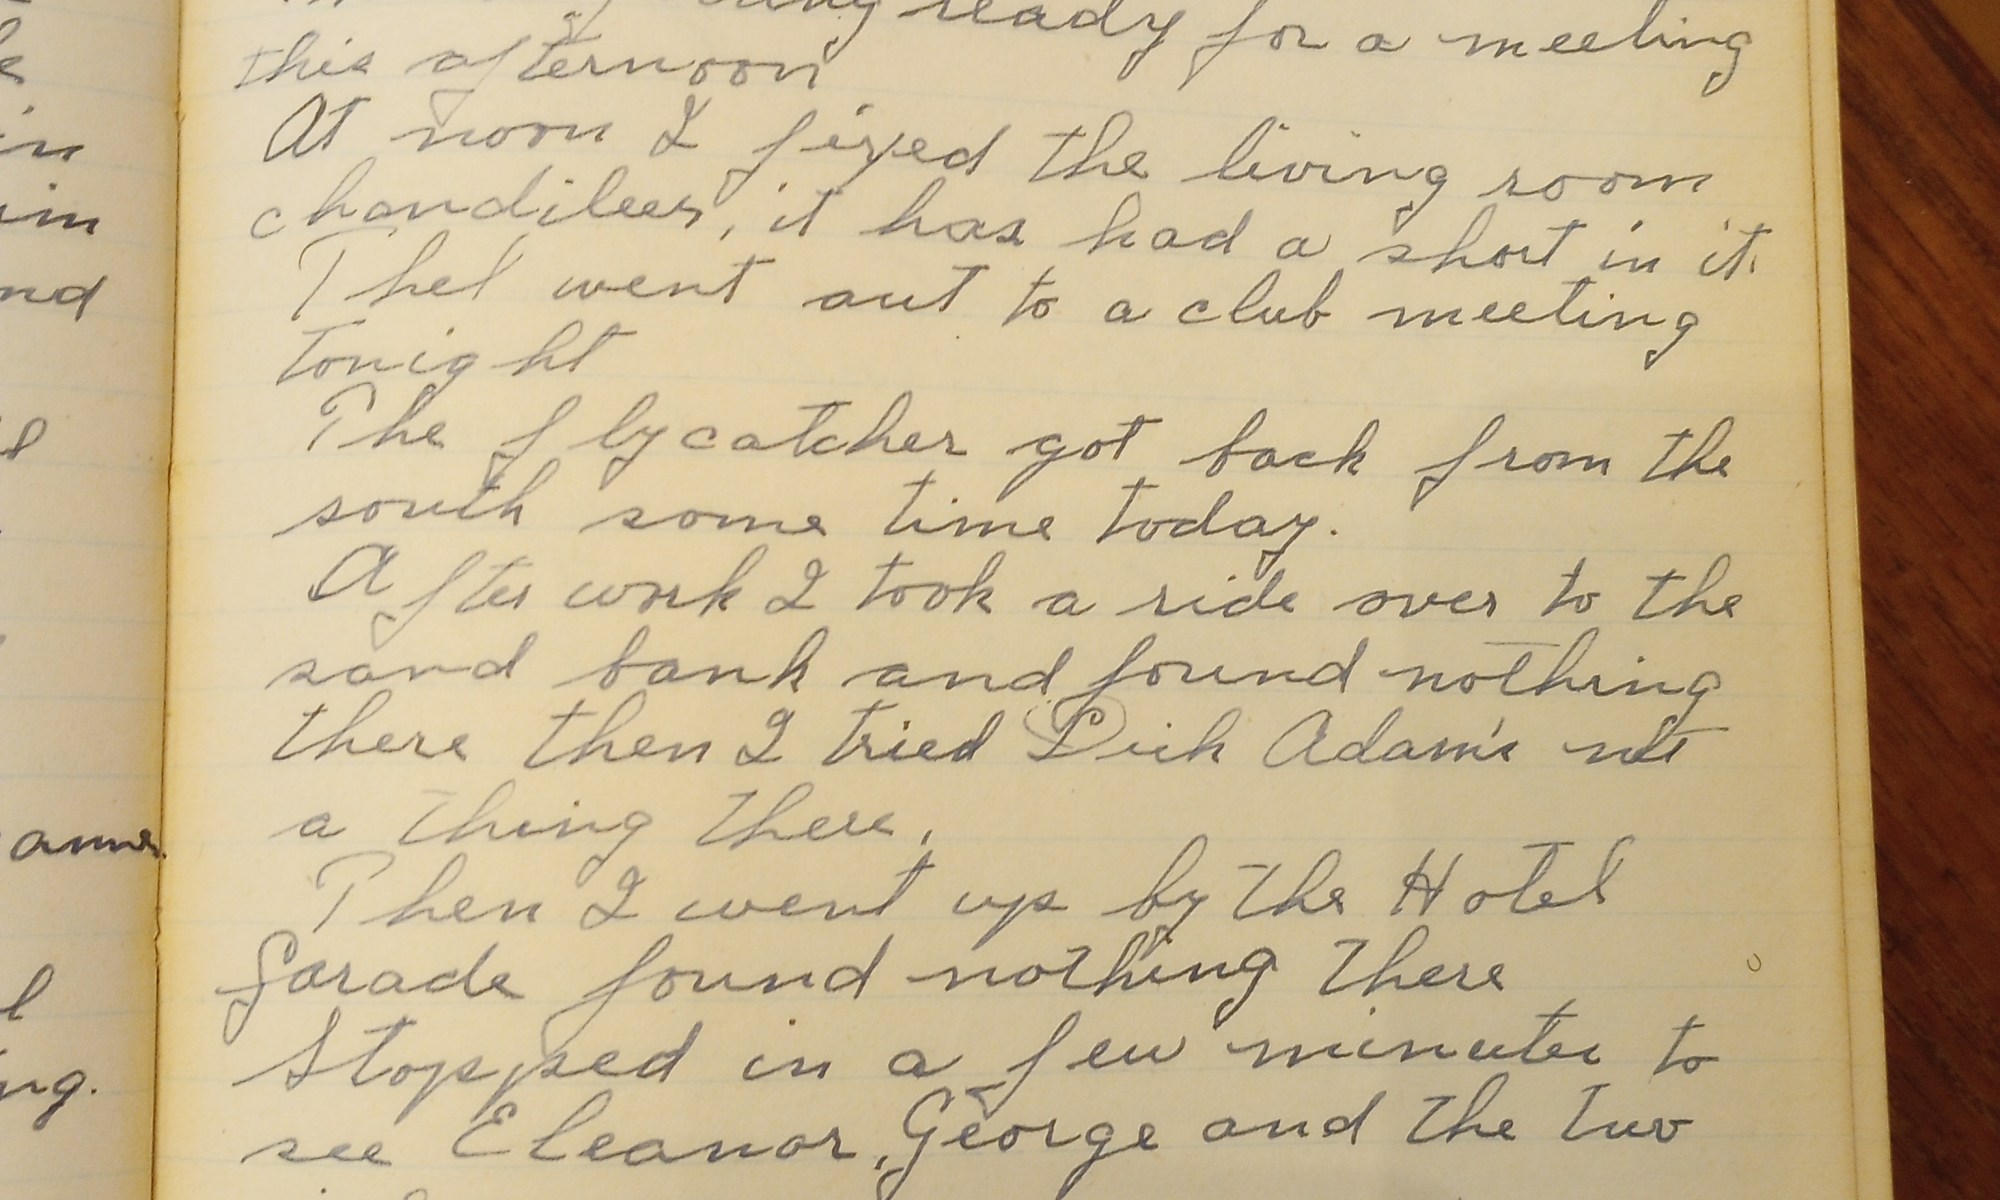 ready for a meeting
this afternoon
At noon I fixed the living room
chandileer, it has had a short in it.
Thel went out to a club meeting
tonight
The flycatcher got back from the
south some time today.
After work I took a ride over to the
sand bank and found nothing
there then I tried Dick Adam's not
a thing there.
Then I went up by the Hotel
Garade found nothing there
Stopped in a few minutes to
see Eleanor, George and the two